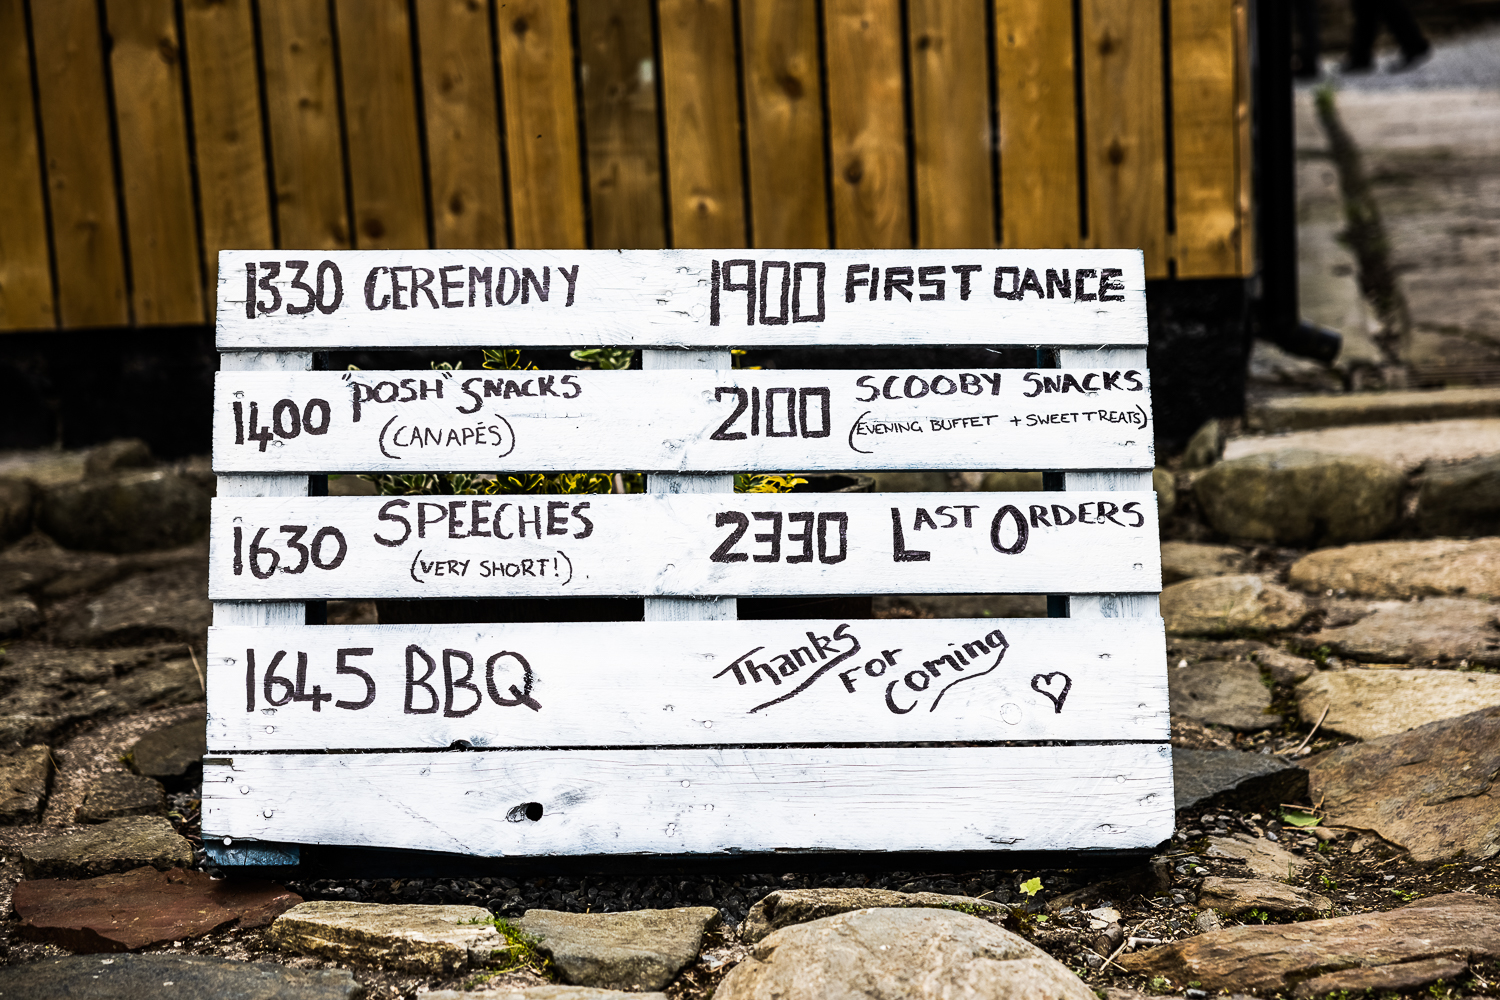 1330 CEREMONY
1400 "POSH" SNACKS
(CANAPÉS)
1630 SPEECHES
(VERY SHORT!)
1645 BBQ
1900 FIRST DANCE
2100 SCOOBY SNACKS
(EVENING BUFFET + SWEET TREATS)
2330 LAST ORDERS
Thanks
For
Coming